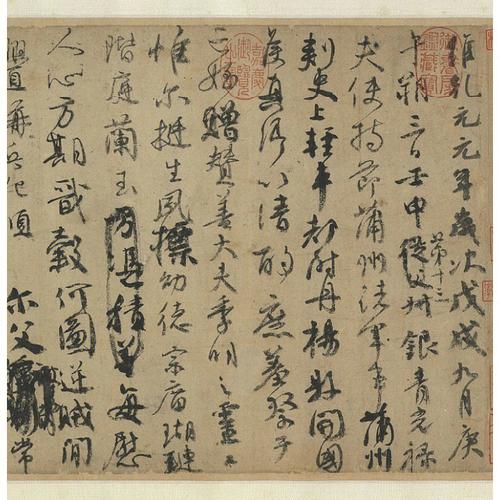 維乾元元年歲次戊戌九月庚
午朔三日壬申第十三從父叔銀青光祿
夫使持節蒲州諸軍事蒲州
刺史上輕車都尉丹楊縣開國
侯真卿以清酌庶羞祭于
亡姪贈贊善大夫季明之靈曰
惟爾挺生夙標幼德宗廟瑚璉
階庭蘭玉方憑積善每慰
人心方期戩穀何圖逆賊閒
釁稱兵犯順爾父常